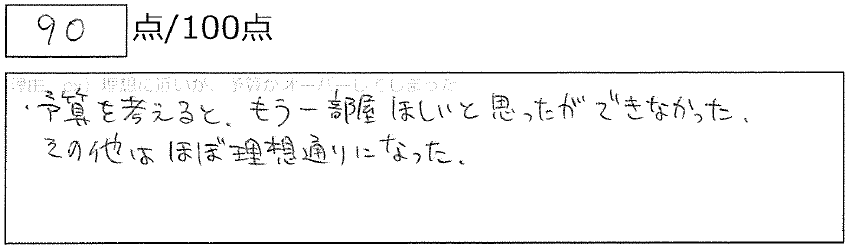 90 点/100点
理由 ex) 理想に近いが、予算がオーバーしてしまった
・予算を考えると、もう一部屋ほしいと思ったができなかった、
その他はほぼ理想通りになった、